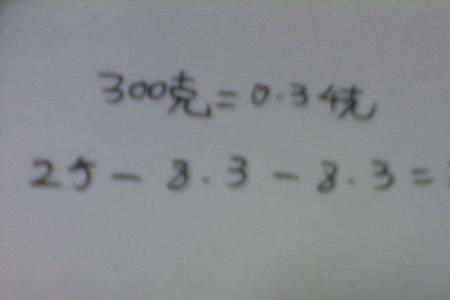 300克=0.3千克
25-8.3-8.3=